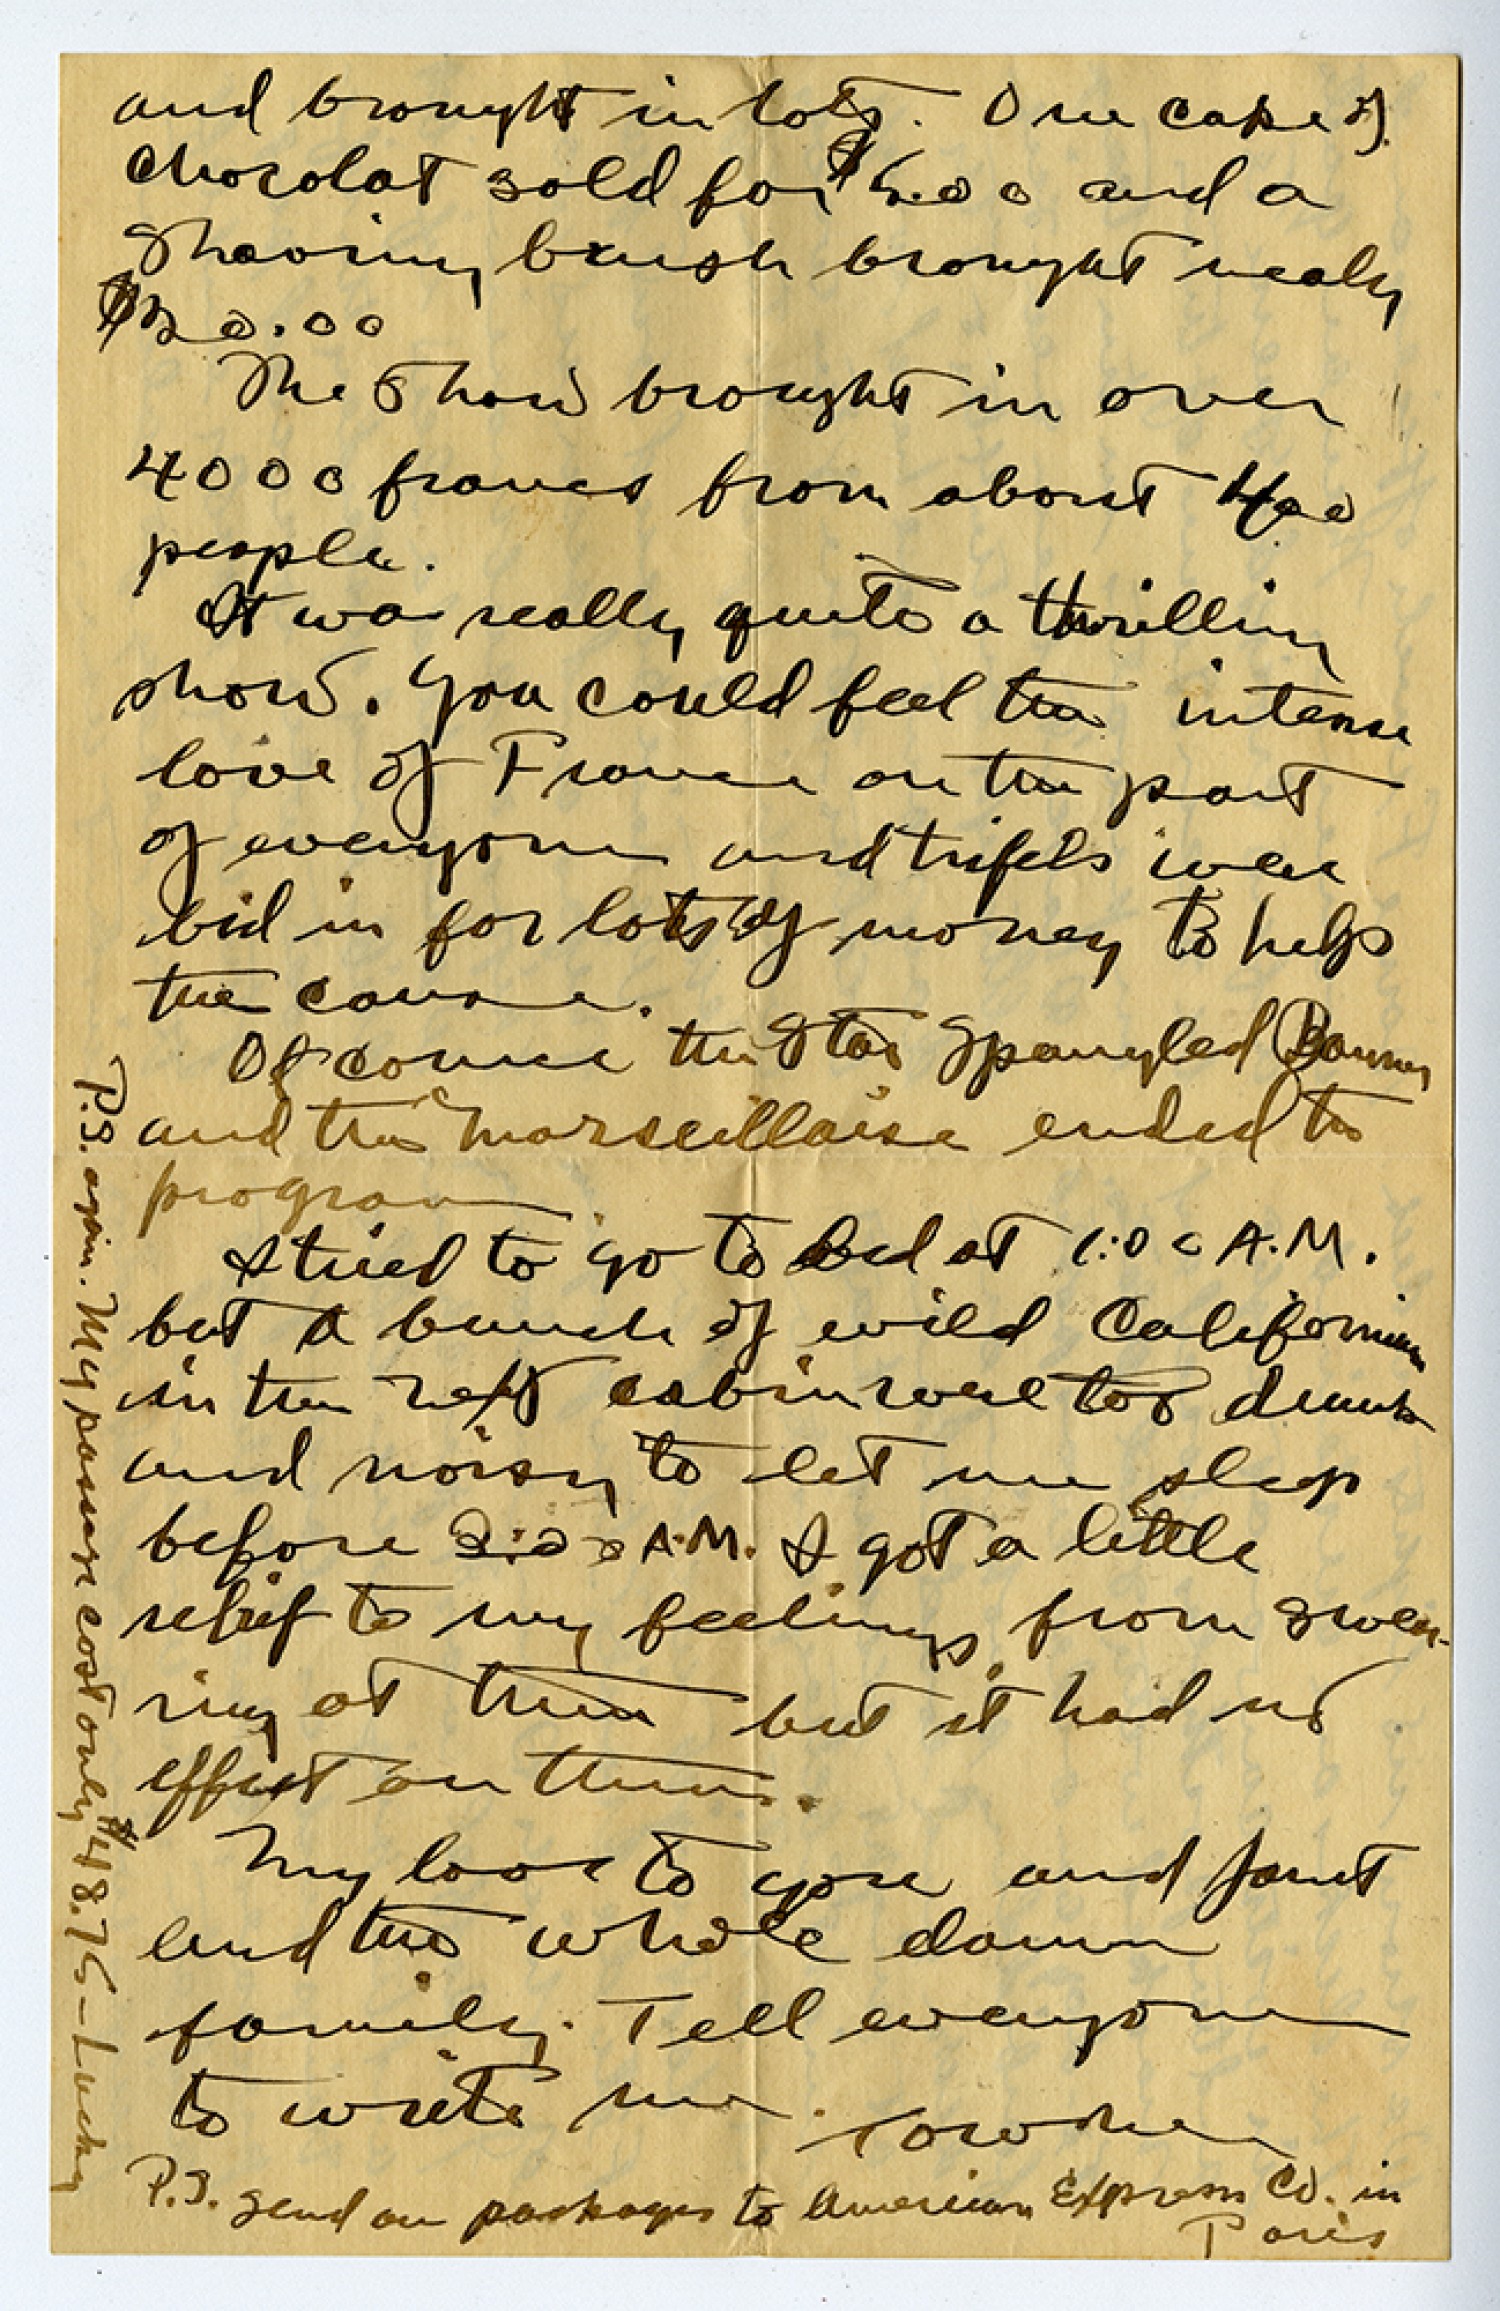 and brought in lots. One cake of
chocolat sold for $5.00 and a
shaving brush brought nealy
$20.00
The Show brought in over
4000 francs from about 400
people.
It was really quite a thrilling
show. You could feel the intense
love of France on the part
of everyone and trifels were
bid in for lots of money to help
the cause.
Of course the Star Spangled Banner
and the Marseillaise ended the
program.
I tried to go to bed at 1:00 A.M.
but a bunch of wild Californians
in the next cabin were too drunk
and noisy to let me sleep
before A.M. I got a little
relief to my feelings from swear-
ing at them but it had no
effect on them.
My love to you and Janet
and the whole damn
family. Tell everyone
to write me.
P.S. send on packages to American Express Co. in
Paris
P.S. again. My passage cost only $48.75 - Lucky